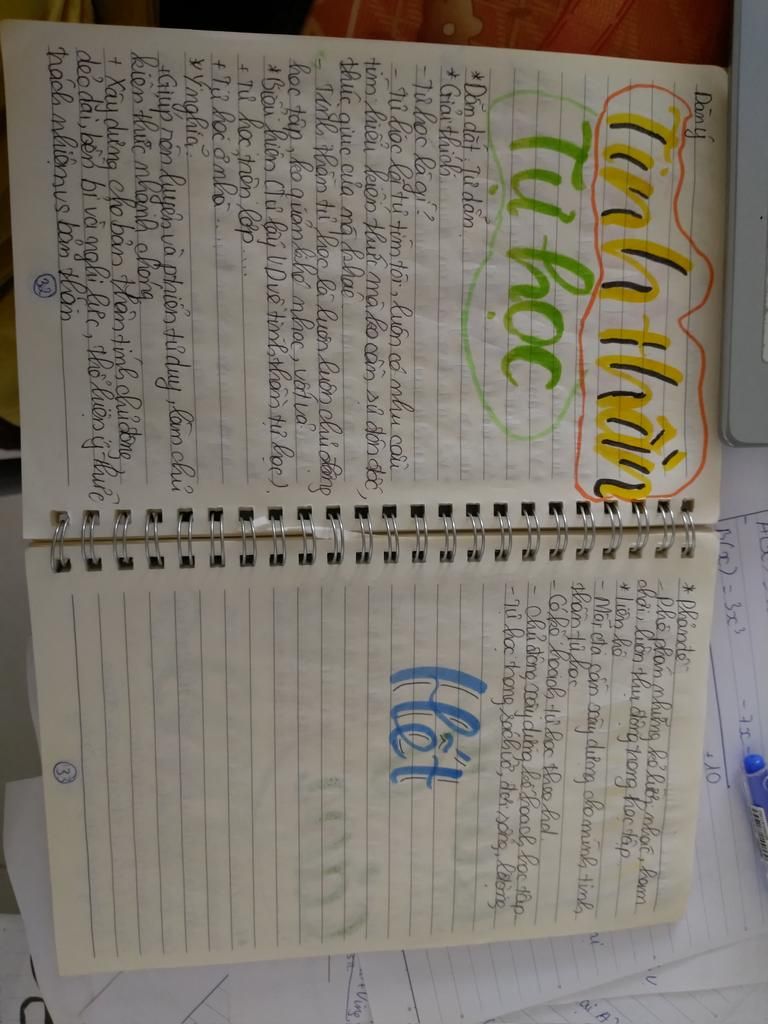 Dàn ý
Tinh thần
Tự học
* Dẫn dắt, Tự dẫn.
* Giải thích.
- Tự học là gì?
- Tự học là tự tìm tòi, luôn có nhu cầu
tìm hiểu kiến thức mà ko cần sự đôn đốc,
thúc giục của ng khác
- Tinh thần tự học là luôn luôn chủ động
học tập, ko quản khó nhọc, vất vả
* Biểu hiện (Tự lấy VD về tinh thần tự học).
+ Tự học trên lớp ....
+ Tự học ở nhà ....
* Ý nghĩa.
+ Giúp rèn luyện và phát triển tư duy, làm chủ
kiến thức nhanh chóng
+ Xây dựng cho bản thân tính chủ động,
dẻo dai, bền bỉ và nghị lực, thể hiện ý thức
trách nhiệm vs bản thân
32
* Phản đề
- Phê phán những kẻ lười nhác, ham
chơi, luôn thụ động trong học tập
* Liên hệ
- Mỗi cta cần xây dựng cho mình tinh
thần tự học
- Có kế hoạch tự học theo
- Chủ động xây dựng kế hoạch học tập
- Tự học trong sách vở, đời sống,
Hết
33
A(x) = 3x³ - 7x